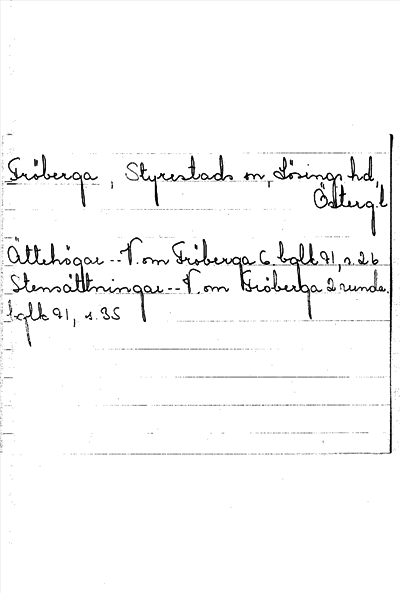 Fröberga, Styrestads sn, Lösings hd,
Österg.l
Ättehögar -- V. om Fröberga 6. bglk 91, s. 26
Stensättningar -- V. om Fröberga 2 runda.
bglk 91, s. 35